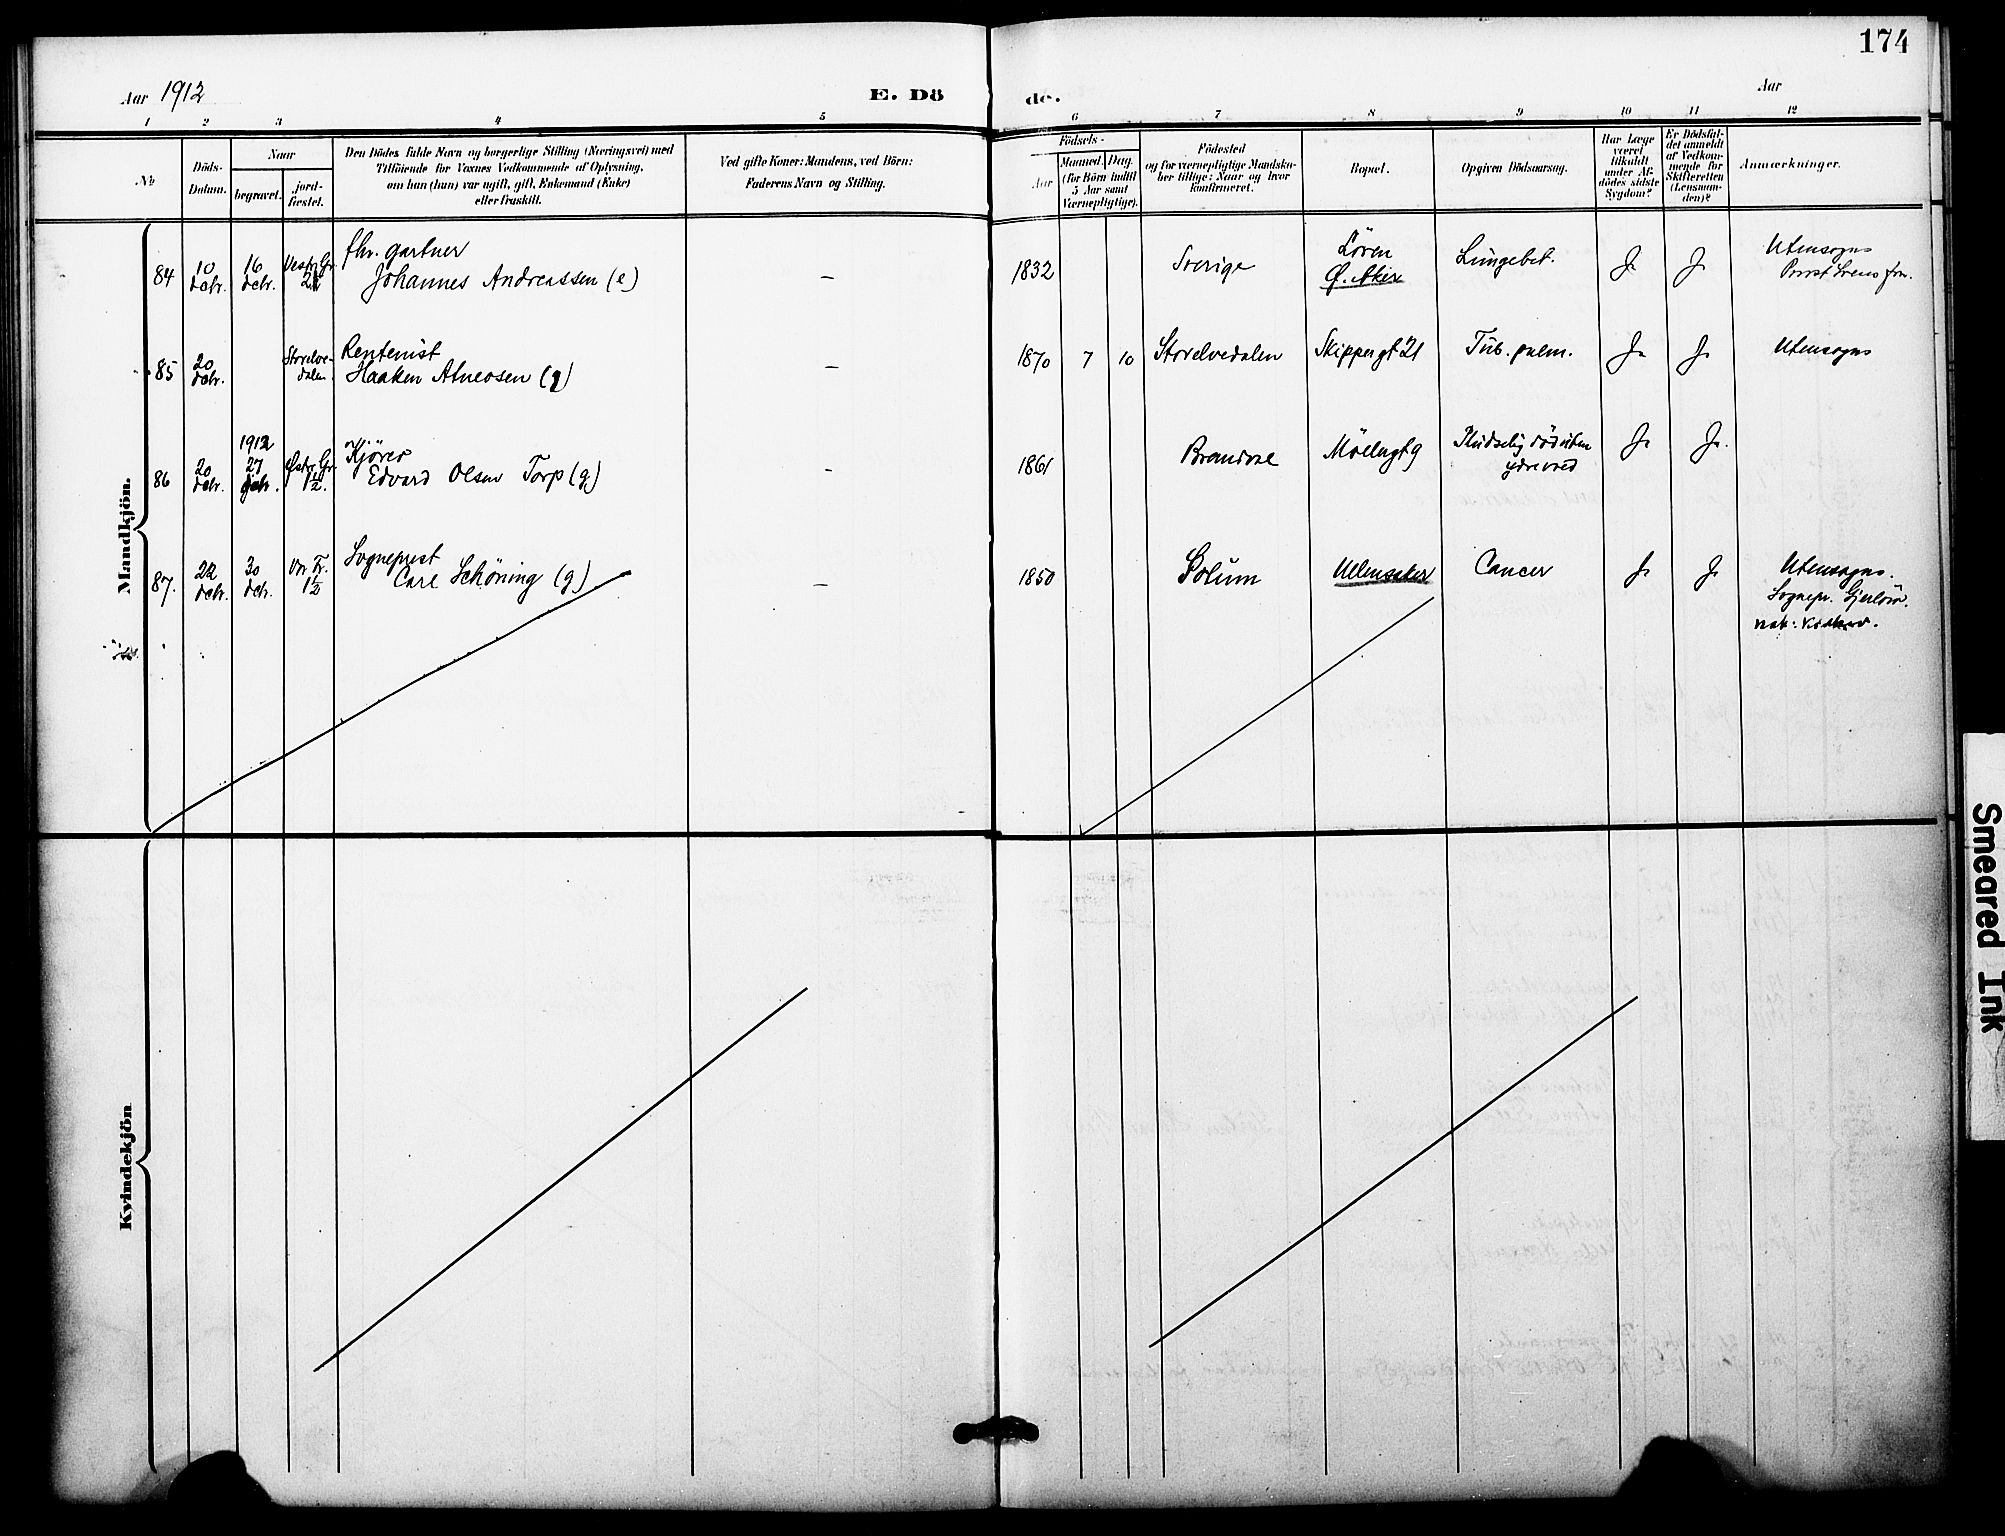 174
Aar 1912
E. Dö
de.
Aar
1 2 3 4 5 6 7 8 9 10 11 12
№
Döds-
Datum.
Naar
begravet.
jord-
fæstet.
Den Dödes fulde Navn og borgerlige Stilling (Næringsvei) med
Tilföiende for Voxnes Vedkommende af Oplysning,
om han (hun) var ugift, gift, Enkemand (Enke)
eller fraskilt.
Ved gifte Koner: Mandens, ved Börn:
Faderens Navn og Stilling.
Födsels-
Aar
Maaned.
Dag.
(for Börn indtil
5 Aar samt
Værnepligtige).
Födested
og for værnepligtige Mandska-
ber tillige: Naar og hvor
konfirmeret.
Bopæl.
Opgiven Dödsaarsag.
Har Læge
været
tilkaldt
under Af-
dödes sidste
Sygdom?
Er Dödsfal-
det anmeldt
af Vedkom-
mende for
Skifteretten
(Lensman-
den)?
Anmærkninger.
Mandkjön.
84
10
Dcbr.
16
Dcbr.
Vestr. Gr.
fhv. gartner
Johannes Andreassen (e)
–
1832
Sverige
Lören
Ø. Aker
Lungebet.
J.
J.
Utensogns
85
20
Dcbr.
Storelve-
dalen
Rentenist
Haaken Atneosen (g)
–
1870 7 10
Storelvedalen
Skippergt 21
Tub. pulm.
J.
J.
Utensogns
86
20
Dcbr.
1912
27
Dcbr.
Østr. Gr.
1½.
Kjörer
Edvard Olsen Torp (g)
–
1861
Brandval
Möllergt 9
Pludselig död uten
ydre vold
J.
J.
87.
22
Dcbr.
30
Dcbr.
Vor Fr.
1½
Sogneprest
Carl Schöning (g)
–
1850
Solum
Ullensaker
Cancer
J.
J.
Utensogns.
Sognepr. Gjerlöw.
Kvindekjön
Smeared Ink